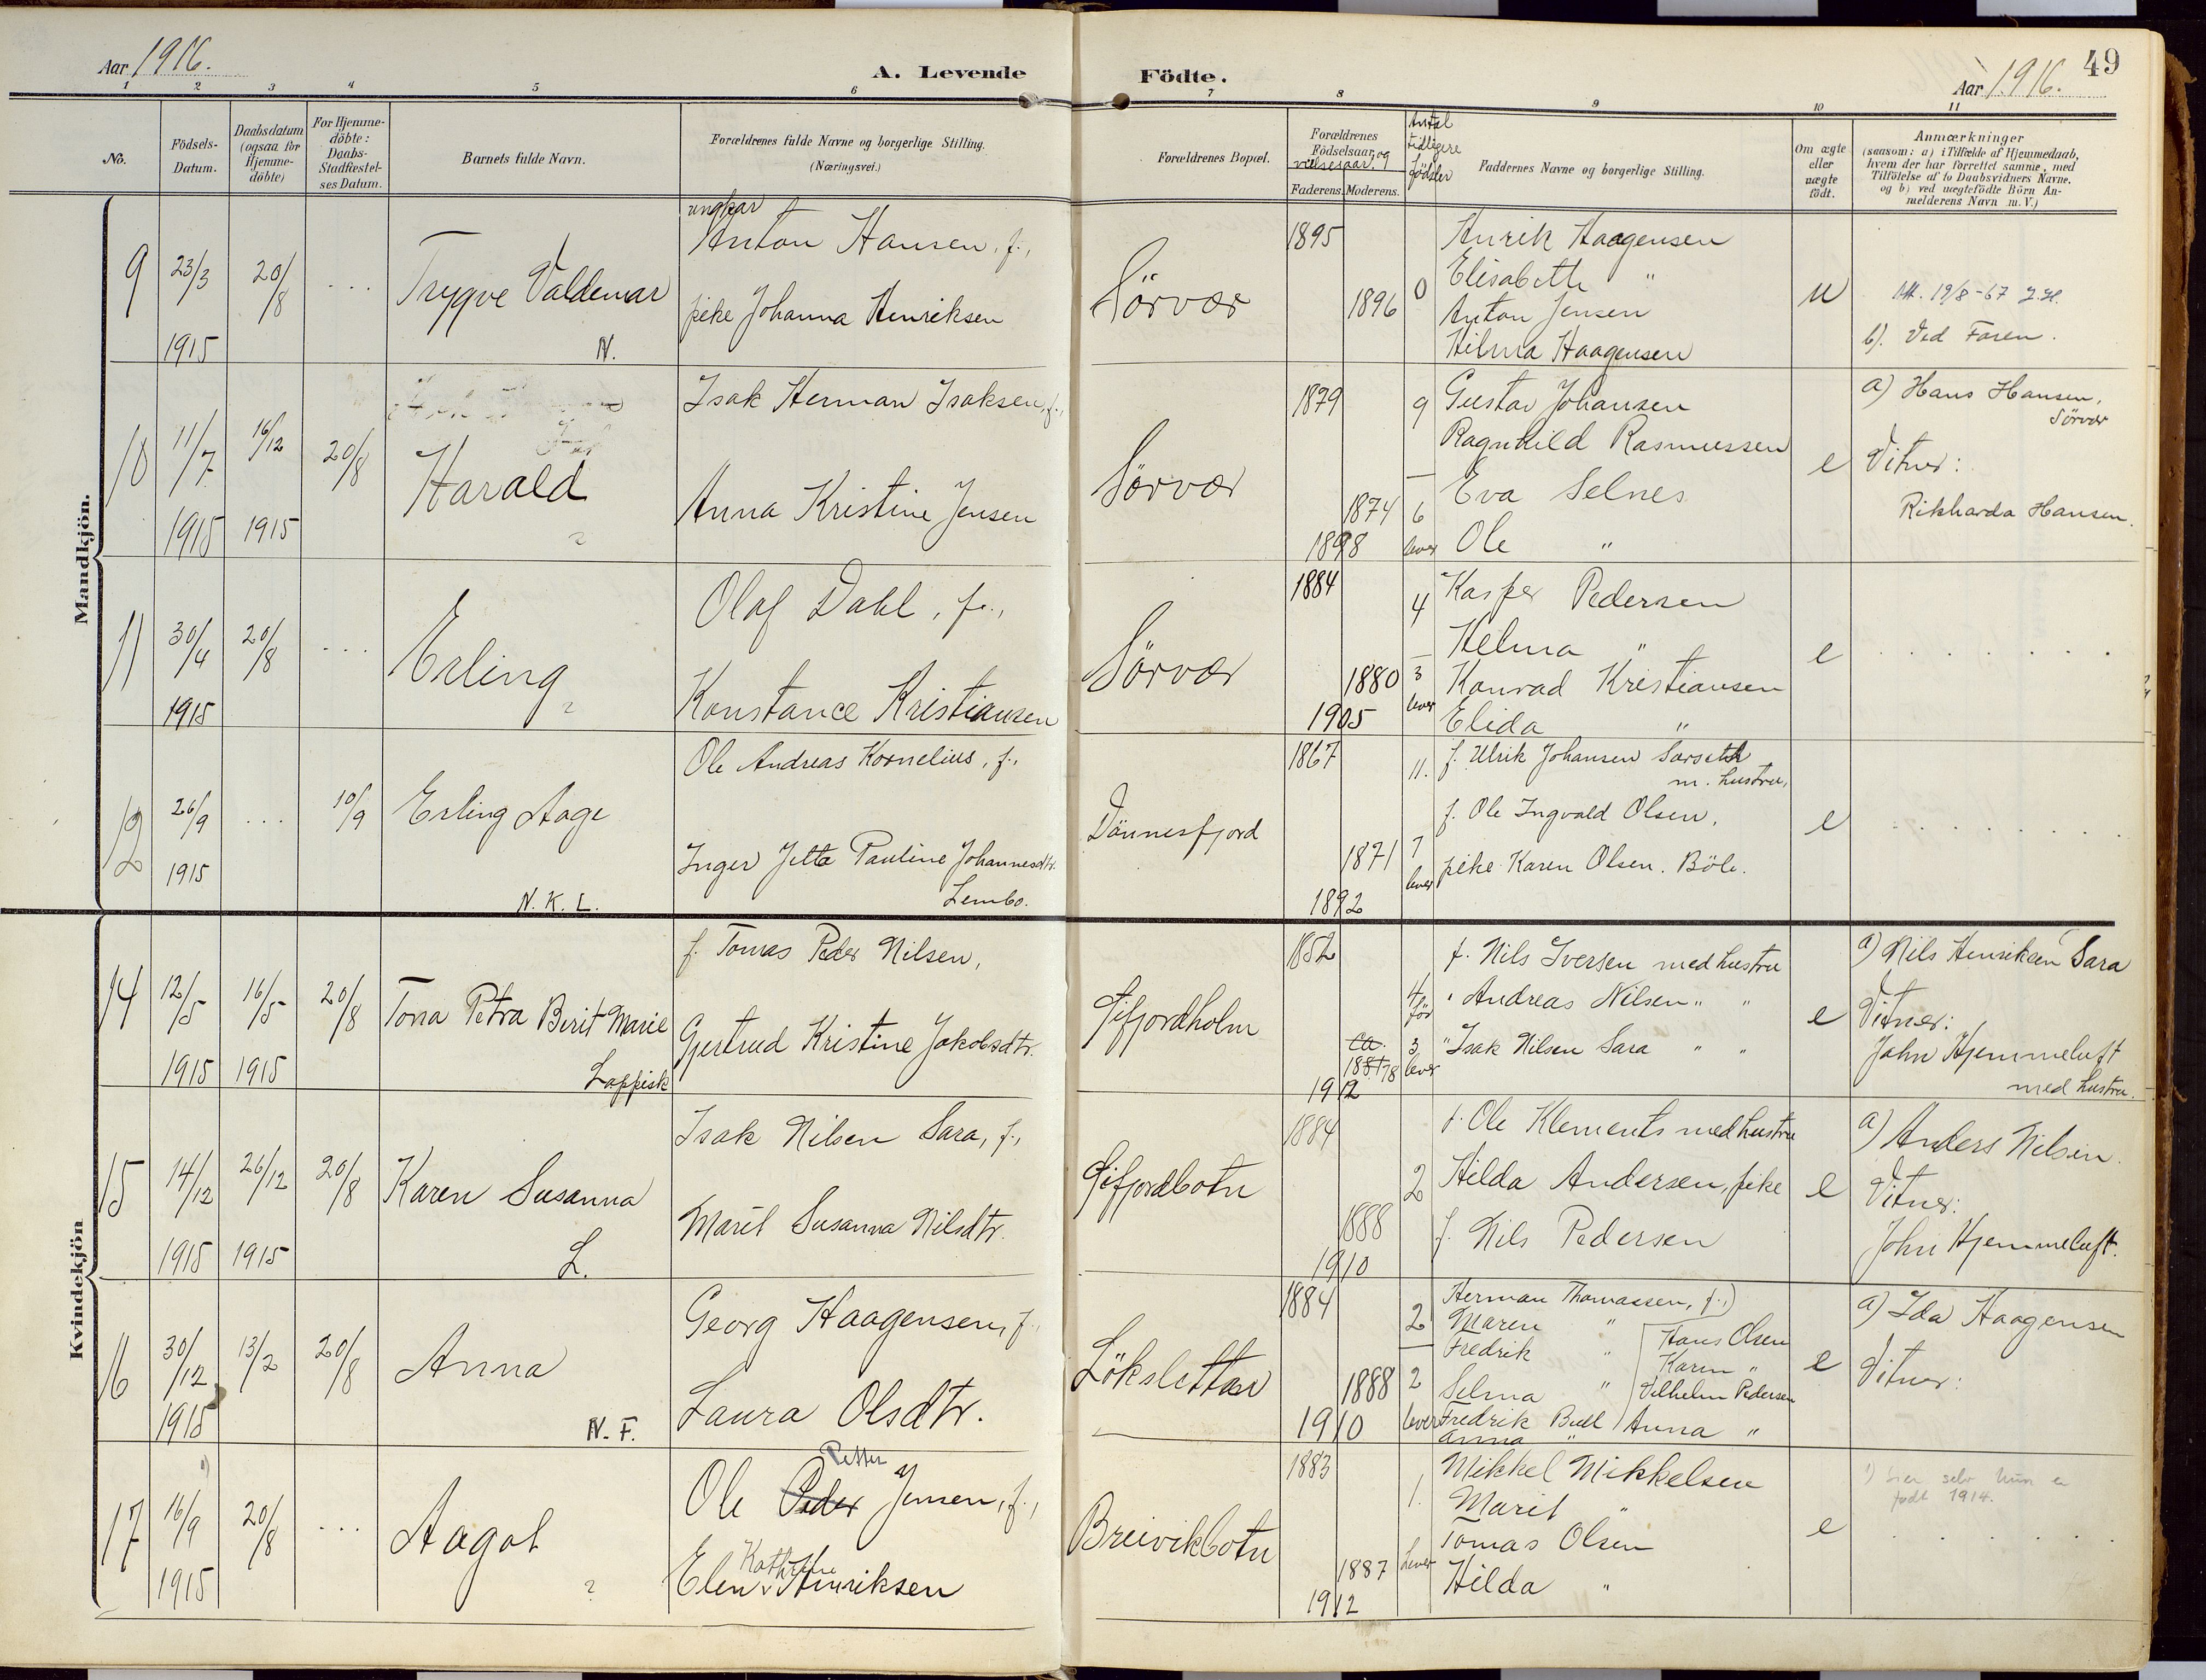 Aar 1916.
A. Levende Födte.
Aar 1916.
49
1 2 3 4 5 6 7 8 9 10 11
No.
Födsels-Datum.
Daabsdatum (ogsaa for Hjemme-döbte)
For Hjemme-döbte: Daabs-Stadfæstel-ses Datum.
Barnets fulde Navn.
Forældrenes fulde Navne og borgerlige Stilling.
(Næringsvei.)
Forældrenes Bopæl.
Forældrenes Födselsaar, og vielsesaar
Faderens. Moderens.
Antal tidligere födsler
Faddernes Navne og borgerlige Stilling.
Om ægte eller uægte födt.
Anmærkninger
(saasom: a) i Tilfælde af Hjemmedaab,
hvem der har forrettet samme, med
Tilföielse af to Daabsvidners Navne.
og b) ved uægtefödte Börn An-
melderens Navn m. V.)
Mandkjön.
9
23/3
1915
20/8
...
Trygve Valdemar
N.
ungkar
Anton Hansen, f.,
pike Johanna Henriksen
Sörvær
1895
1896
0
Henrik Haagensen
Elisabeth "
Anton Jensen
Hilma Haagensen
u
Att. 19/8-67
b). Ved Faren.
10
11/7
1915
16/12
1915
20/8
Harald
?
Isak Herman Isaksen, f.,
Anna Kristine Jensen
Sörvær
1879
1874
1898
9
6
lever
Gustav Johansen
Ragnhild Rasmussen
Eva Selnes
Ole "
e
a) Hans Hansen,
Sörvær
Vitner:
Rikharda Hansen.
11
30/4
1915
20/8
...
Erling
?
Olaf Dahl, f.,
Konstance Kristiansen
Sörvær
1884
1880
1905
4
3
lever
Kasper Pedersen
Helma "
Konrad Kristiansen
Elida "
e
12
26/9
1915
...
10/9
Erling Aage
N. K. L.
Ole Andreas Kornelius, f.,
Inger Jetta Pauline Johannesdtr.
Lembo.
Dönnesfjord
1867
1871
1892
11.
7
lever
f. Ulrik Johansen Sarseth
m. hustru,
f. Ole Ingvald Olsen.
pike Karen Olsen. Böle.
e
Kvindekjön
14
12/5
1915
16/5
1915
20/8
Tona Petra Berit Marie
Lappisk
f. Tomas Peder Nilsen,
Gjertrud Kristine Jakobsdtr.
Gifjordholm
1852
ca.
1881 78
1912
4
för
3
lever
f. Nils Iversen med hustru
" Andreas Nilsen " "
" Isak Nilsen Sara " "
e
a) Nils Henriksen Sara
Vitner:
John Hjemmeluft
med hustru.
15
14/12
1915
26/12
1915
20/8
Karen Susanna
L.
Isak Nilsen Sara, f.,
Marit Susanna Nilsdtr.
Gifjordbotn
1884
1888
1910
2
f. Ole Klements med hustru
Hilda Andersen, pike
f. Nils Pedersen
e
a) Anders Nilsen.
Vitner:
John Hjemmeluft.
16
30/12
1915
13/2
20/8
Anna
N. F.
Georg Haagensen, f.,
Laura Olsdtr.
Lökslettan
1884
1888
1910
2
2
lever
Herman Thomassen, f.,
Maren "
Fredrik "
Selma "
Fredrik Bull
Anna "
Hans Olsen
Karen "
Vilhelm Pedersen
Anna "
e
a) Ida Haagensen
Vitner:
17
1)
16/9
1915
20/8
...
Aagot
?
Petter
Ole Peder Jensen, f.,
Kathrine
Elen Henriksen
Breivikbotn
1883
1887
1912
1.
Lever
Mikkel Mikkelsen
Marit "
Tomas Olsen
Hilda "
e
1) selv hun er
födt 1914.